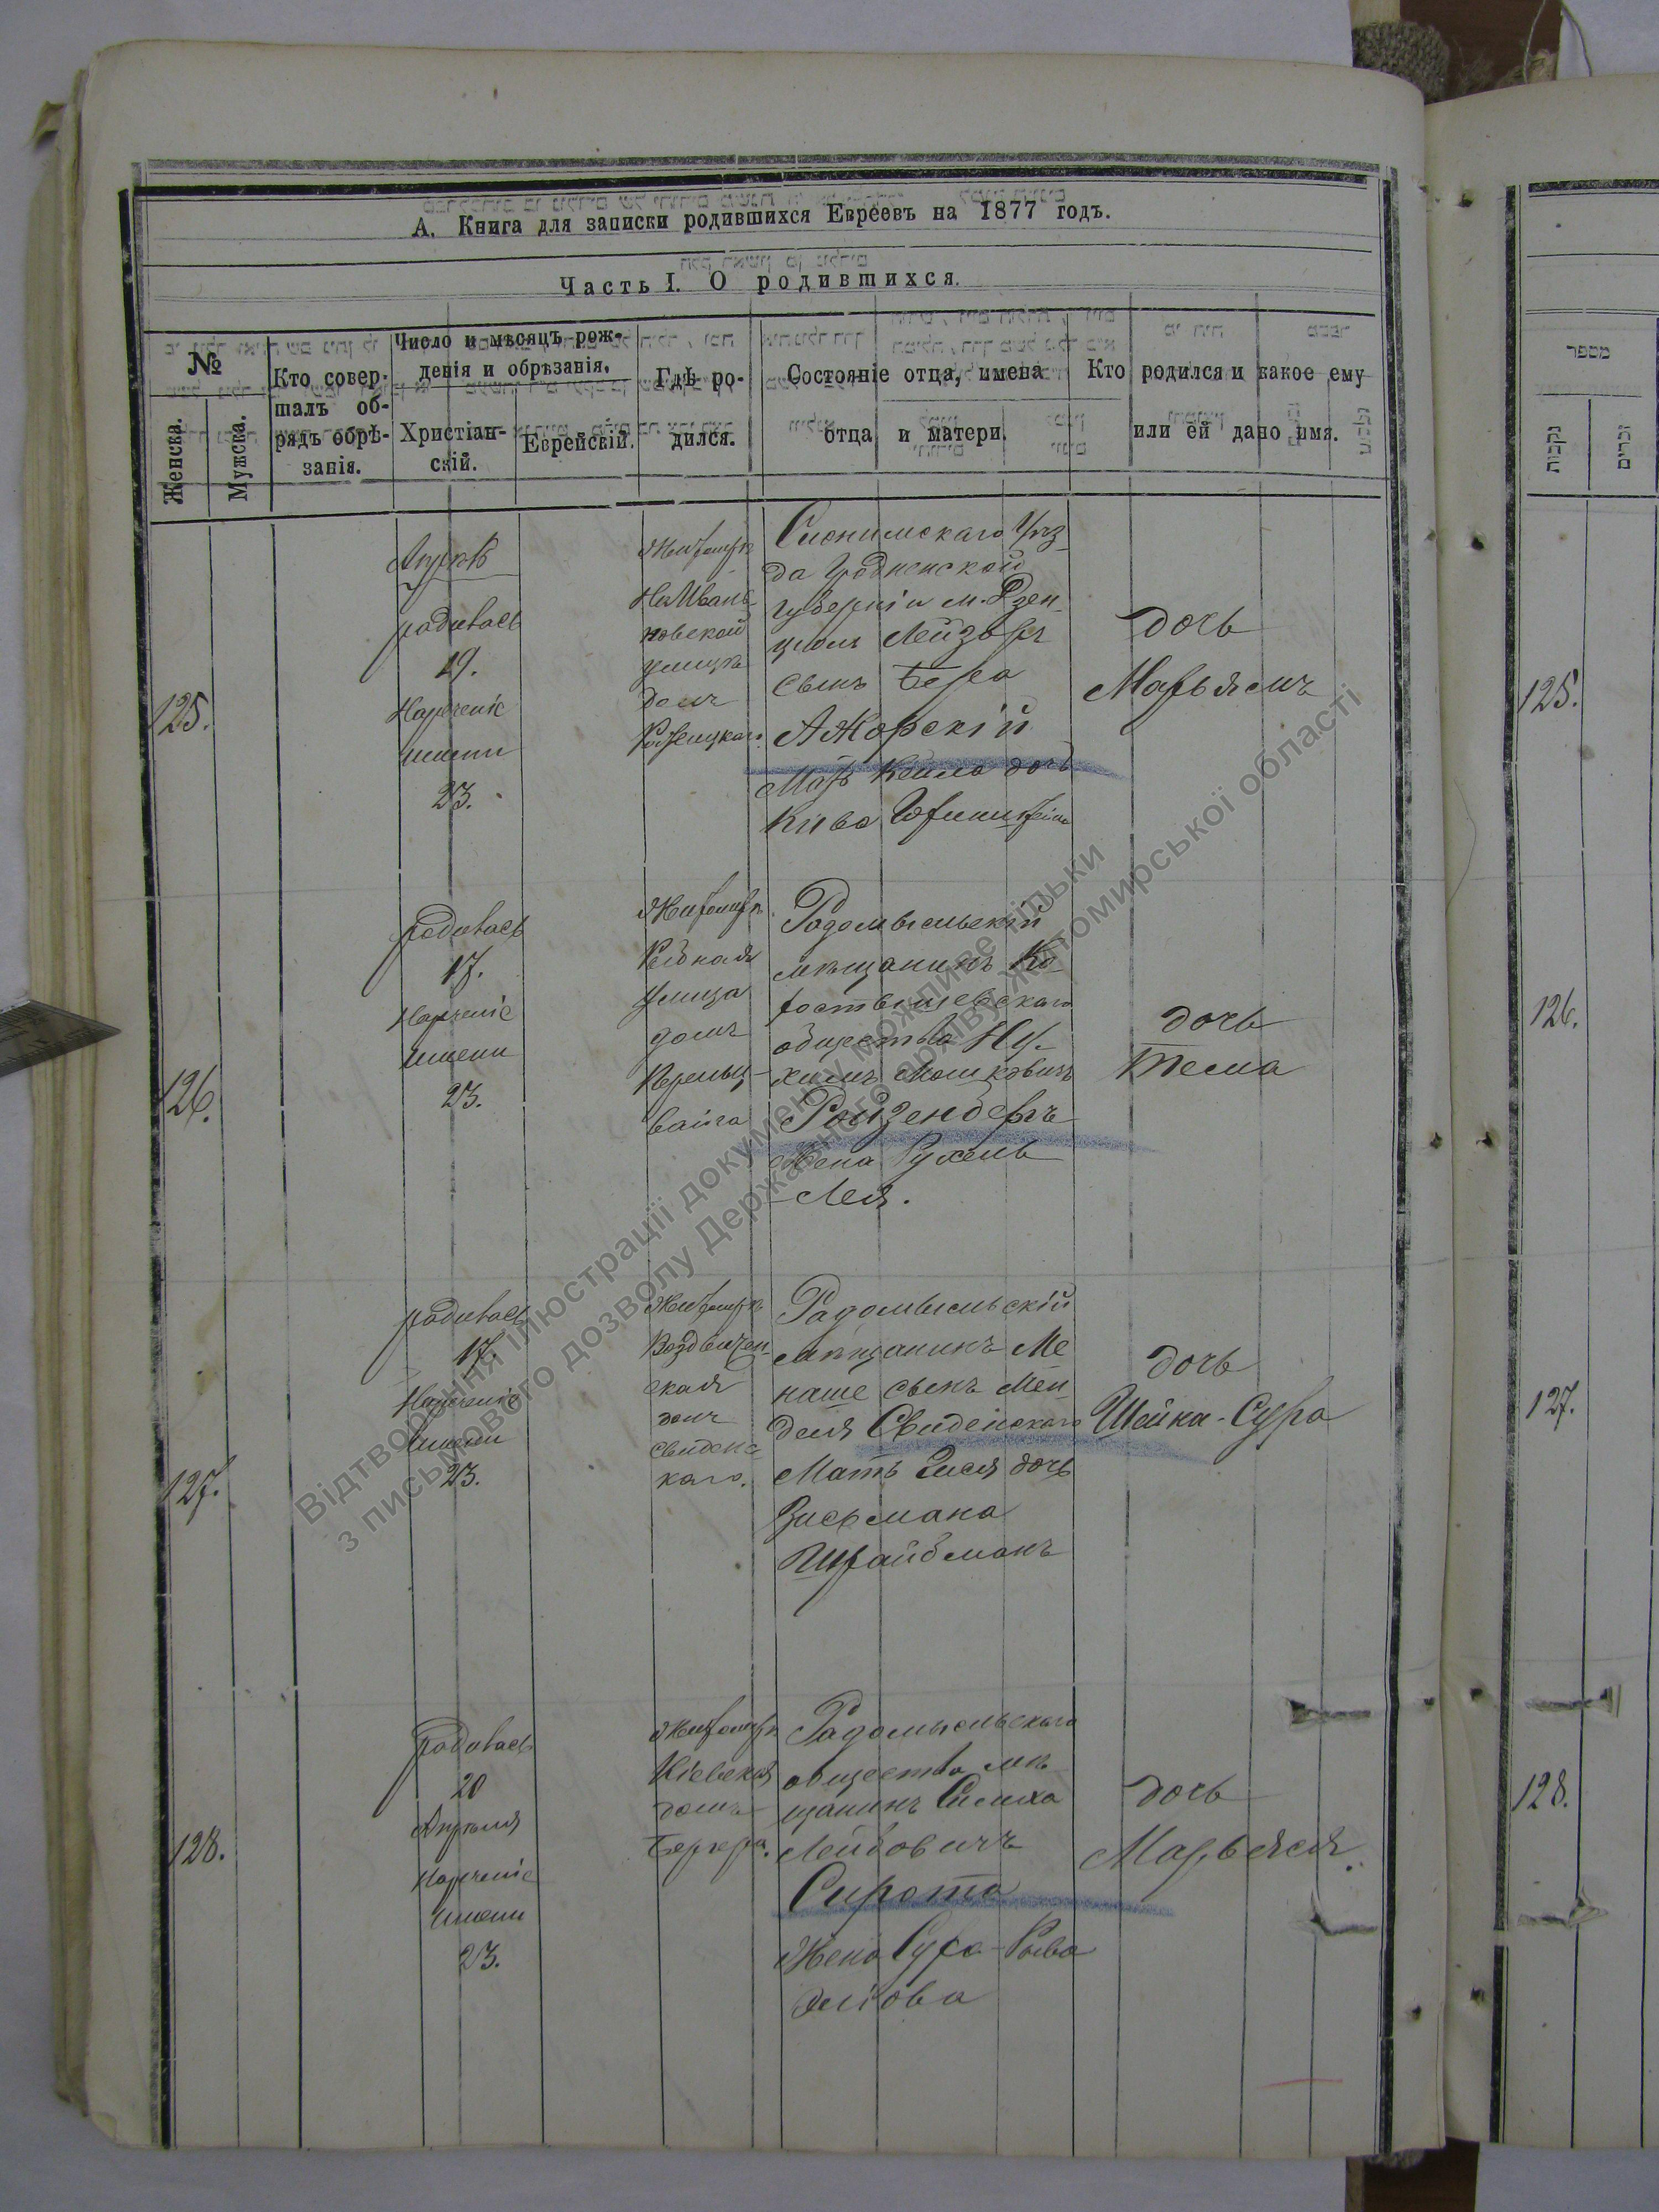 А. Книга для записки родившихся Евреевъ на 1877 годъ.
Часть I. О родившихся.
№
Женска.
Мужска.
Кто совер-
шалъ об-
рядъ обрѣ-
занія.
Число и мѣсяцъ рож-
денія и обрѣзанія.
Христіан-
скій.
Еврейскій.
Гдѣ ро-
дился.
Состояніе отца, имена
отца и матери.
Кто родился и какое ему
или ей дано имя.
125.
родилась
19.
Нареченіе
имени
23.
Житомиръ
На Ивань-
новской
улицѣ
домъ
Слонимскаго Уѣз-
да Гродненской
губерніи м. Дзен-
ціолъ Лейзоръ
сынъ Бера
АЖорскій
Мать Кейла дочь
Кива
дочь
Марьямъ
126.
родилась
17.
Нареченіе
имени
23.
Житомиръ
Рыбная
Улица
домъ
Радомысльскій
мѣщанинъ Ко-
ростышевскаго
общества Ну-
химъ Мошковичъ
Ройзенберъ
Жена Рухель
Лея.
дочь
Тема
127.
родилась
17.
Нареченіе
имени
23.
Житомиръ
Воздвижен-
ская
домъ
Свиденс-
каго.
Радомысльскій
мѣщанинъ Ме
наше сынъ Мен-
деля Свиденскаго
Мать Эйся дочь
Зисьмана
Шрайбманъ
дочь
Шейна-Сура
128.
родилась
20
Апрѣля
Нареченіе
имени
23.
Житомиръ
Кіевская
домъ
Бергера.
Радомысльскаго
общества мѣ
щанинъ Симха
Лейбовичъ
Сирота
Жена Сура-Рыва
дочь
Марьяся.
מספר
נקבות
זכרים
125.
126.
127.
128.
Відтворення ілюстрації документу можливе тільки
з письмового дозволу Державного архіву Житомирської області